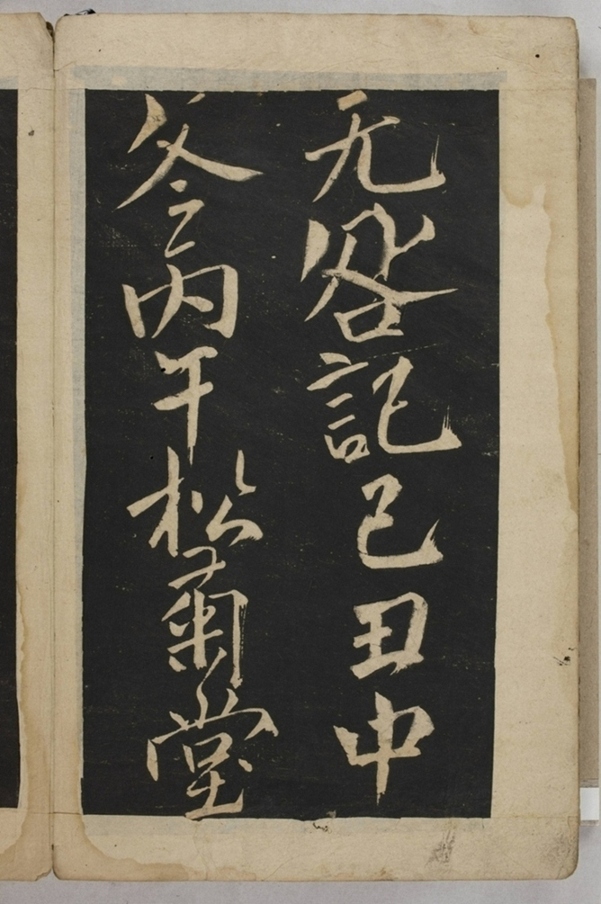 无咎記己丑中
冬丙午松菊堂